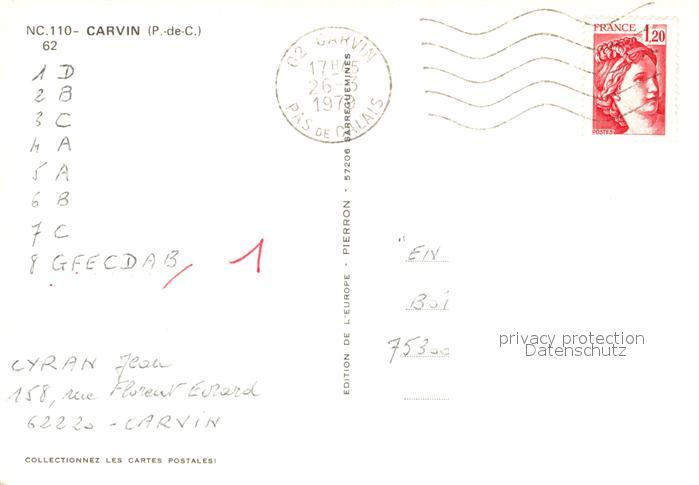 NC.110- CARVIN (P.-de-C.)
62
1 D
2 B
3 C
4 A
5 A
6 B
7 C
8 GFECDAB
1
CYRAN Jean
158, rue Florent Evrard
62220 - CARVIN
COLLECTIONNEZ LES CARTES POSTALES!
EDITION DE L'EUROPE - PIERRON - 57206 SARREGUEMINES
62 CARVIN
26-3
PAS DE CALAIS
FRANCE
1,20
POSTES
"EN
BOÎ
75300
privacy protection
Datenschutz